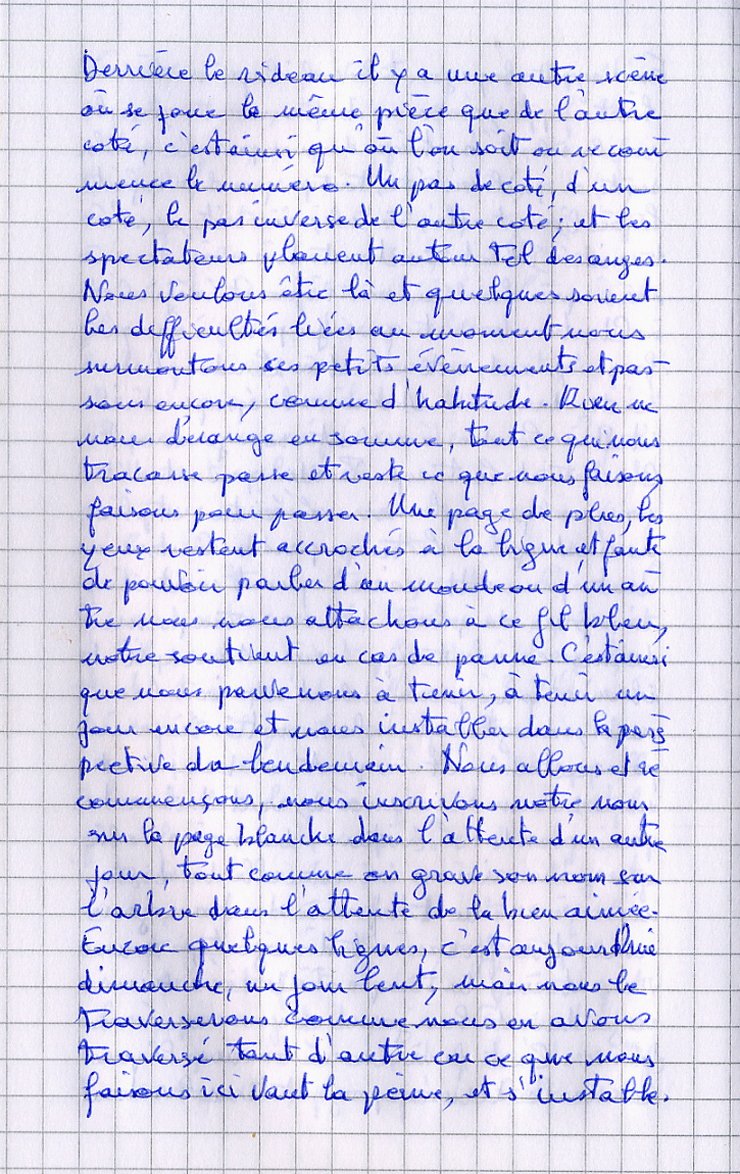 Derrière le rideau il y a une autre scène
où se joue la même pièce que de l'autre
coté, c'est ainsi qu'où l'on soit on recom
mence le numéro. Un pas de coté, d'un
coté, le pas inverse de l'autre coté ; et les
spectateurs planent autour tel des anges.
Nous voulons être là et quelques soient
les difficultés liées au moment nous
surmontons ces petits évènements et pas-
sons encore, comme d'habitude. Rien ne
nous dérange en somme, tout ce qui nous
tracasse passe et reste ce que nous faisons,
faisons pour passer. Une page de plus, les
yeux restent accrochés à la ligne, et faute
de pouvoir parler d'un monde ou d'un au
tre nous nous attachons à ce fil bleu,
notre soutient en cas de panne. C'est ainsi
que nous parvenons à tenir, à tenir un
jour encore et nous installer dans la pers
pective du lendemain. Nous allons et re
commençons, nous inscrivons notre nom
sur la page blanche dans l'attente d'un autre
jour, tout comme on grave son nom sur
l'arbre dans l'attente de la bien aimée.
Encore quelques lignes, c'est aujourd'hui
dimanche, un jour lent, mais nous le
traverserons comme nous en avons
traversé tant d'autre car ce que nous
faisons ici vaut la peine, et s'installe.